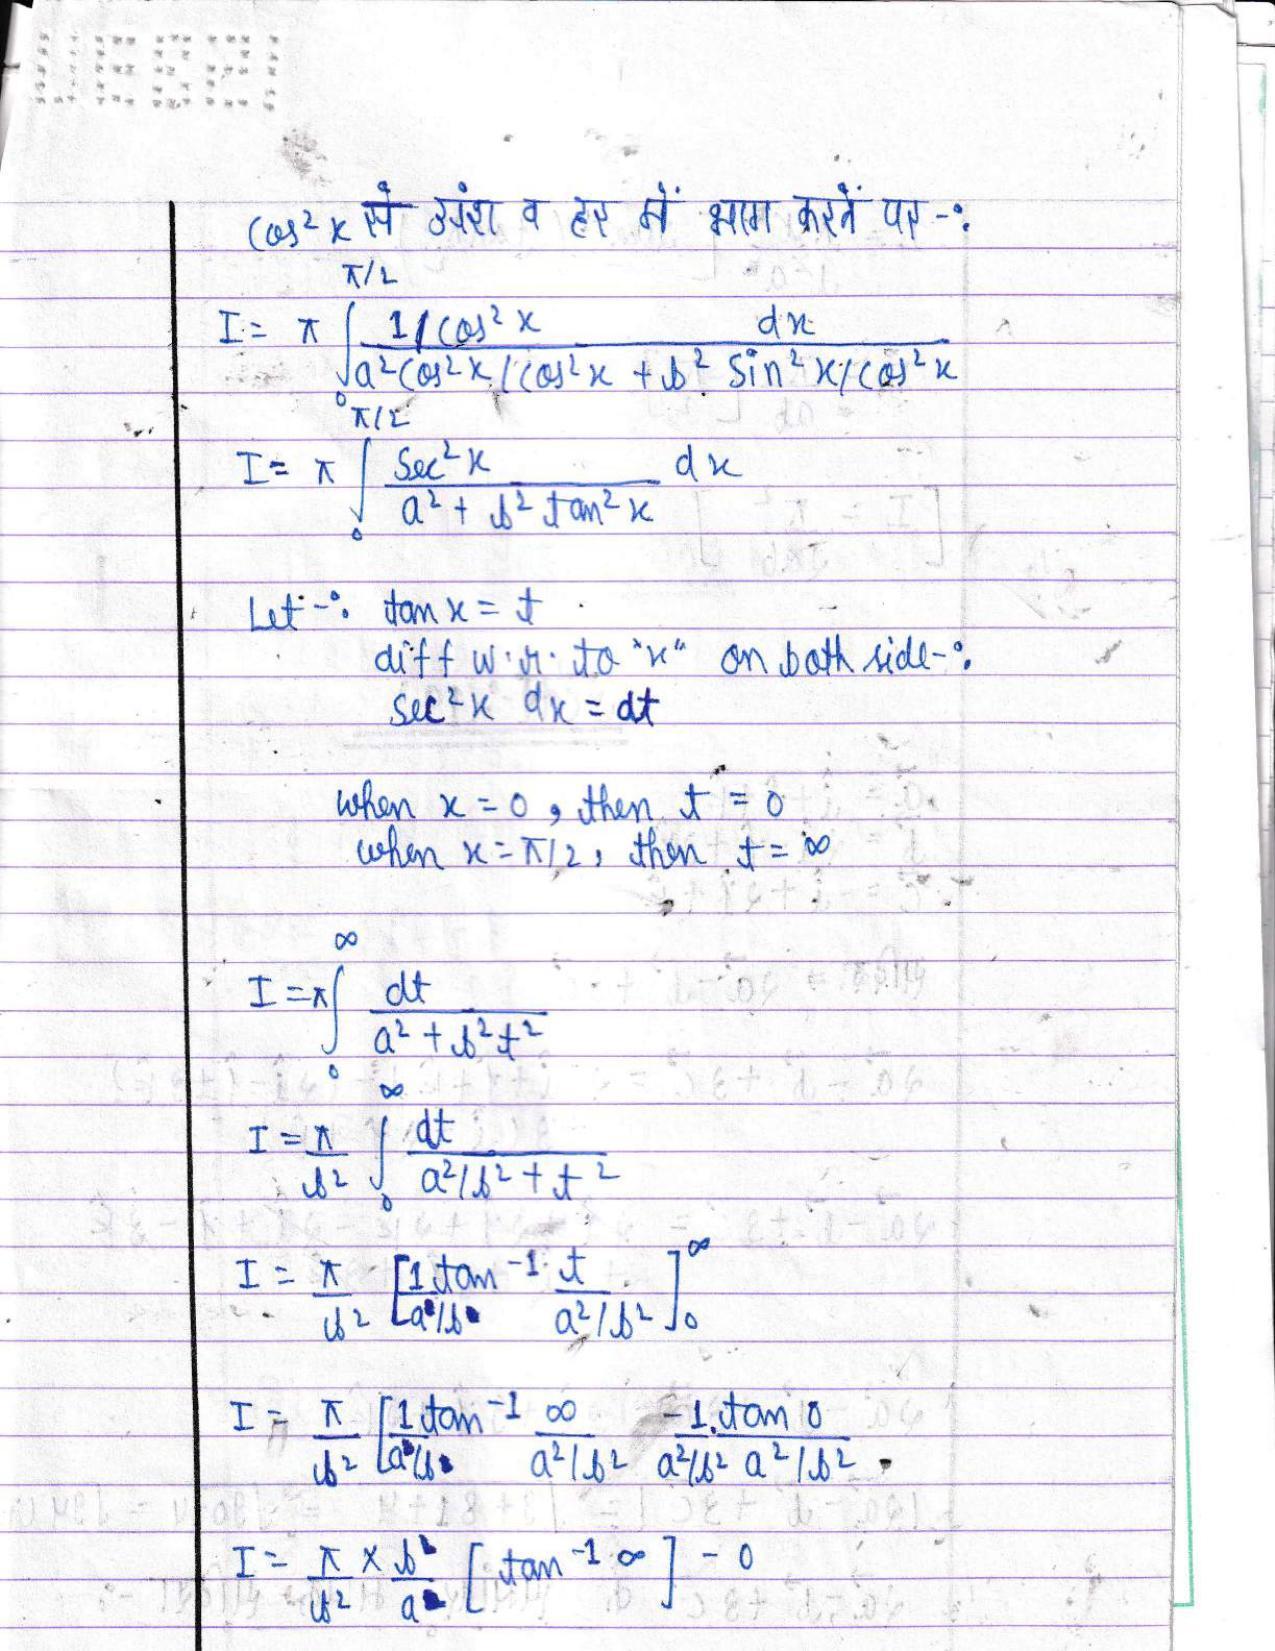 cos² x से अंश व हर में भाग करने पर -:
I = π ∫₀^{π/2} 1/cos² x dx / (a² cos² x/cos² x + b² sin² x/cos² x)
I = π ∫₀^{π/2} sec² x / (a² + b² tan² x) dx
Let -: tan x = t
diff w.r. to "x" on both side -:
sec² x dx = dt
when x = 0, then t = 0
when x = π/2, then t = ∞
I = π ∫₀^∞ dt / (a² + b² t²)
I = π/b² ∫₀^∞ dt / (a²/b² + t²)
I = π/b² [1/(a/b) tan⁻¹ t/(a²/b²)]₀^∞
I = π/b² [1/(a/b) tan⁻¹ ∞/(a²/b²) - 1/(a²/b²) . tan 0/(a²/b²) .
I = π/b² × b/a [tan⁻¹ ∞] - 0